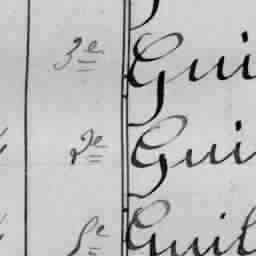 3e Gui
2e Gui
5e Guil